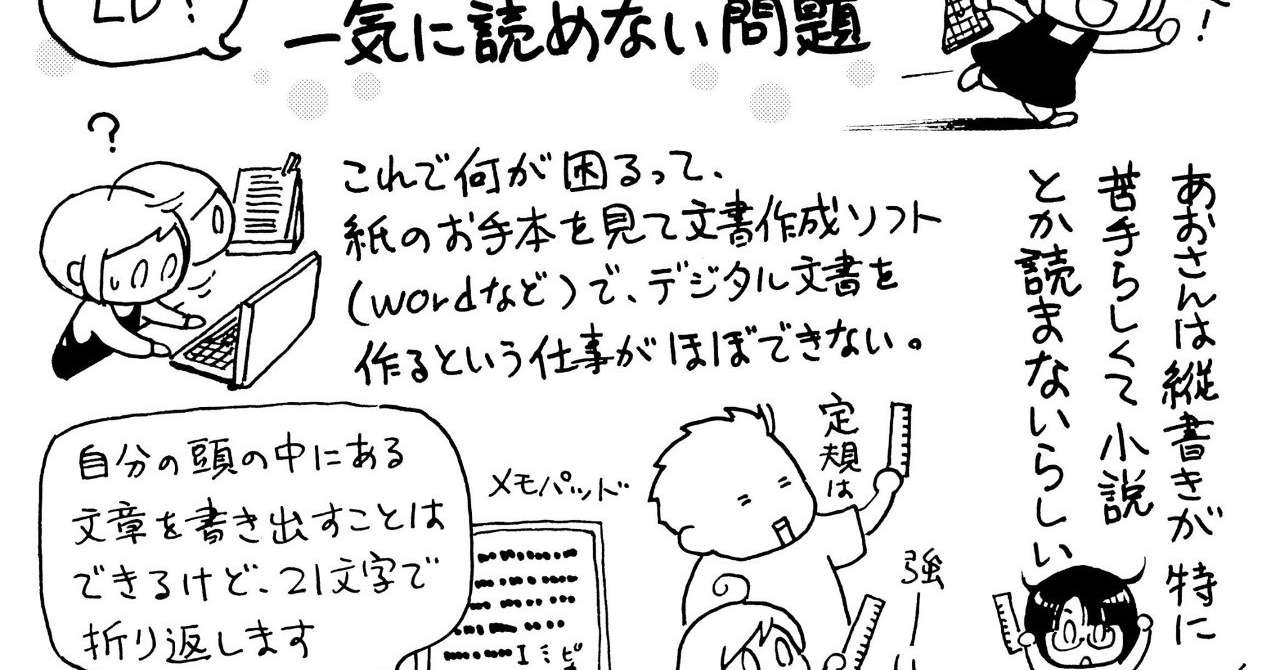 LD?
一気に読めない問題
!
?
あおさんは縦書きが特に
苦手らしくて小説
とか読まないらしい
これで何が困るって、
紙のお手本を見て文書作成ソフト
(wordなど)で、デジタル文書を
作るという仕事がほぼできない。
自分の頭の中にある
文章を書き出すことは
できるけど、21文字で
折り返します
メモパッド
定規は
強